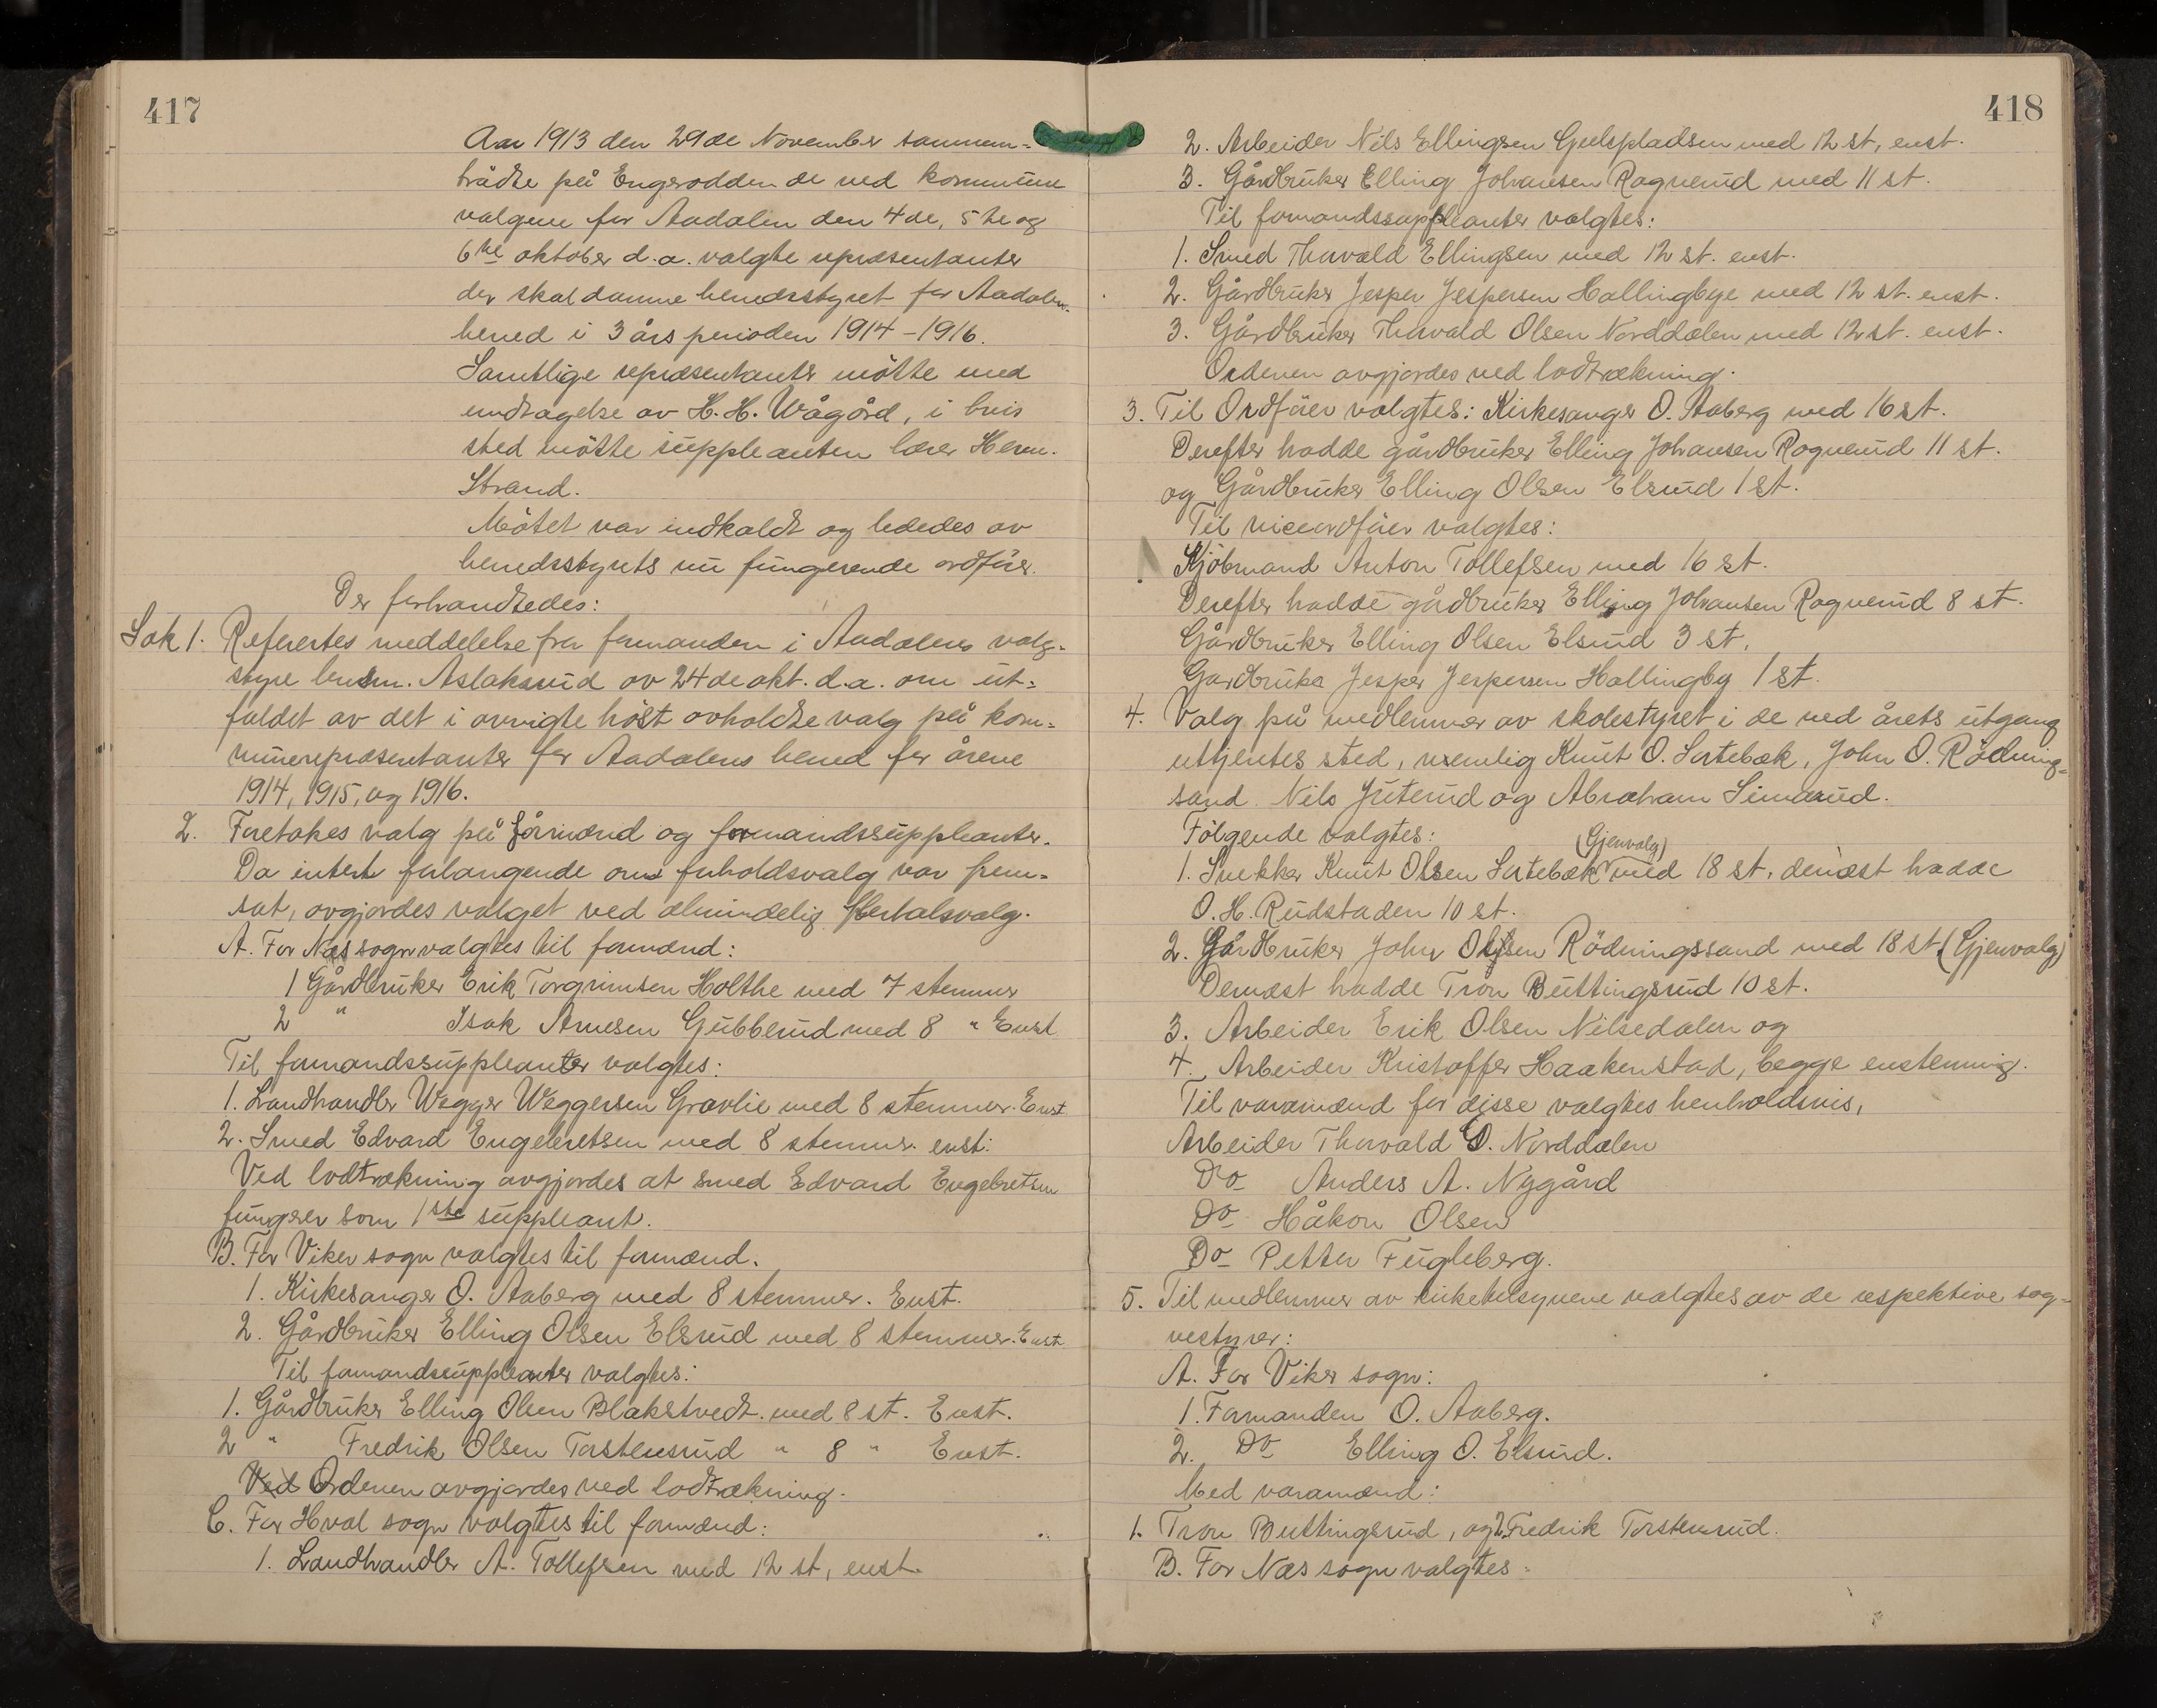 417
Aar 1913 den 29de November sammen-
trådte på Engerodden de ved kommune
valgene for Aadalen den 4de, 5te og
6te oktober d.a. valgte repræsentanter
der skal danne heredsstyret for Aadalen
hered i 3 års perioden 1914-1916.
Samtlige repræsentanter mötte med
undtagelse av H. H. Wågård, i hvis
sted mötte suppleanten lærer Herm.
Strand.
Mötet var indkaldt og lededes av
heredsstyrets nu fungerende ordförer.
Der forhandledes:
Sak 1. Referertes meddelelse fra formanden i Aadalens valg-
styre lensm. Aslaksrud av 24de okt. d.a. om ut-
faldet av det i avvigte höst avholdte valg på kom-
munerepræsentanter for Aadalens hered for årene
1914, 1915, og 1916.
2. Foretokes valg på formænd og formandssuppleanter.
Da intet forlangende om forholdsvalg var frem-
sat, avgjordes valget ved almindelig flertalsvalg.
A. For Næs sogn valgtes til formænd:
1 Gårdbruker Erik Torgrimsen Holthe med 7 stemmer
2 " Isak Arnesen Gubberud med 8 " Enst
Til formandssuppleanter valgtes:
1. Landhandler Wegger Weggersen Gravlie med 8 stemmer. Enst
2. Smed Edvard Engebretsen med 8 stemmer. enst.
Ved lodtrækning avgjordes at smed Edvard Engebretsen
fungerer som 1ste suppleant.
B. For Viker sogn valgtes til formænd.
1. Kirkesanger O. Aaberg med 8 stemmer. Enst.
2. Gårdbruker Elling Olsen Elsrud med 8 stemmer. Enst
Til formandssuppleanter valgtes:
1. Gårdbruker Elling Olsen Blakstvedt. med 8 st. Enst.
2 " Fredrik Olsen Torstensrud " 8 " Enst.
Ved Ordenen avgjordes ved lodtrækning.
C. For Hval sogn valgtes til formænd:
1. Landhandler A. Tollefsen med 12 st, enst.
418
2. Arbeider Nils Ellingsen Gulspladsen med 12 st, enst.
3. Gårdbruker Elling Johansen Ragnerud med 11 st.
Til formandssuppleanter valgtes:
1. Smed Thorvald Ellingsen med 12 st. enst.
2. Gårdbruker Jesper Jespersen Hallingbye med 12 st. enst.
3. Gårdbruker Thorvald Olsen Norddalen med 12 st. enst.
Ordenen avgjordes ved lodtrækning.
3. Til Ordförer valgtes: Kirkesanger O. Aaberg med 16 st.
Derefter hadde gårdbruker Elling Johansen Ragnerud 11 st.
og Gårdbruker Elling Olsen Elsrud 1 st.
Til viceordförer valgtes:
Kjöbmand Anton Tollefsen med 16 st.
Derefter hadde gårdbruker Elling Johansen Ragnerud 8 st.
Gårdbruker Elling Olsen Elsrud 3 st.
Gardbruker Jesper Jespersen Hallingby 1 st.
4. Valg på medlemmer av skolestyret i de ved årets utgang
uttjentes sted, nemlig Knut O. Sætebæk, John O. Rödning-
sand. Nils Juterud og Abraham Simarud.
Fölgende valgtes:
(Gjenvalg)
1. Snekker Knut Olsen Sætebæk med 18 st. dernæst hadde
O. H. Rudstaden 10 st.
2. Gårdbruker John Olsen Rödningssand med 18 st. (Gjenvalg)
Dernæst hadde Tron Buttingsrud 10 st.
3. Arbeider Erik Olsen Nilsedalen og
4. Arbeider Kristoffer Haakenstad, begge enstemmig.
Til varamænd for disse valgtes henholdsvis,
Arbeider Thorvald O. Norddalen
Do Anders A. Nygård
Do Håkon Olsen
Do Petter Fugleberg.
5. Til medlemmer av kirketilsynene valgtes av de respektive sog-
nestyrer:
A. For Viker sogn:
1. Formanden O. Aaberg.
2. Do Elling O. Elsrud.
Med varamænd:
1. Tron Buttingsrud, og 2. Fredrik Torstensrud.
B. For Næs sogn valgtes: